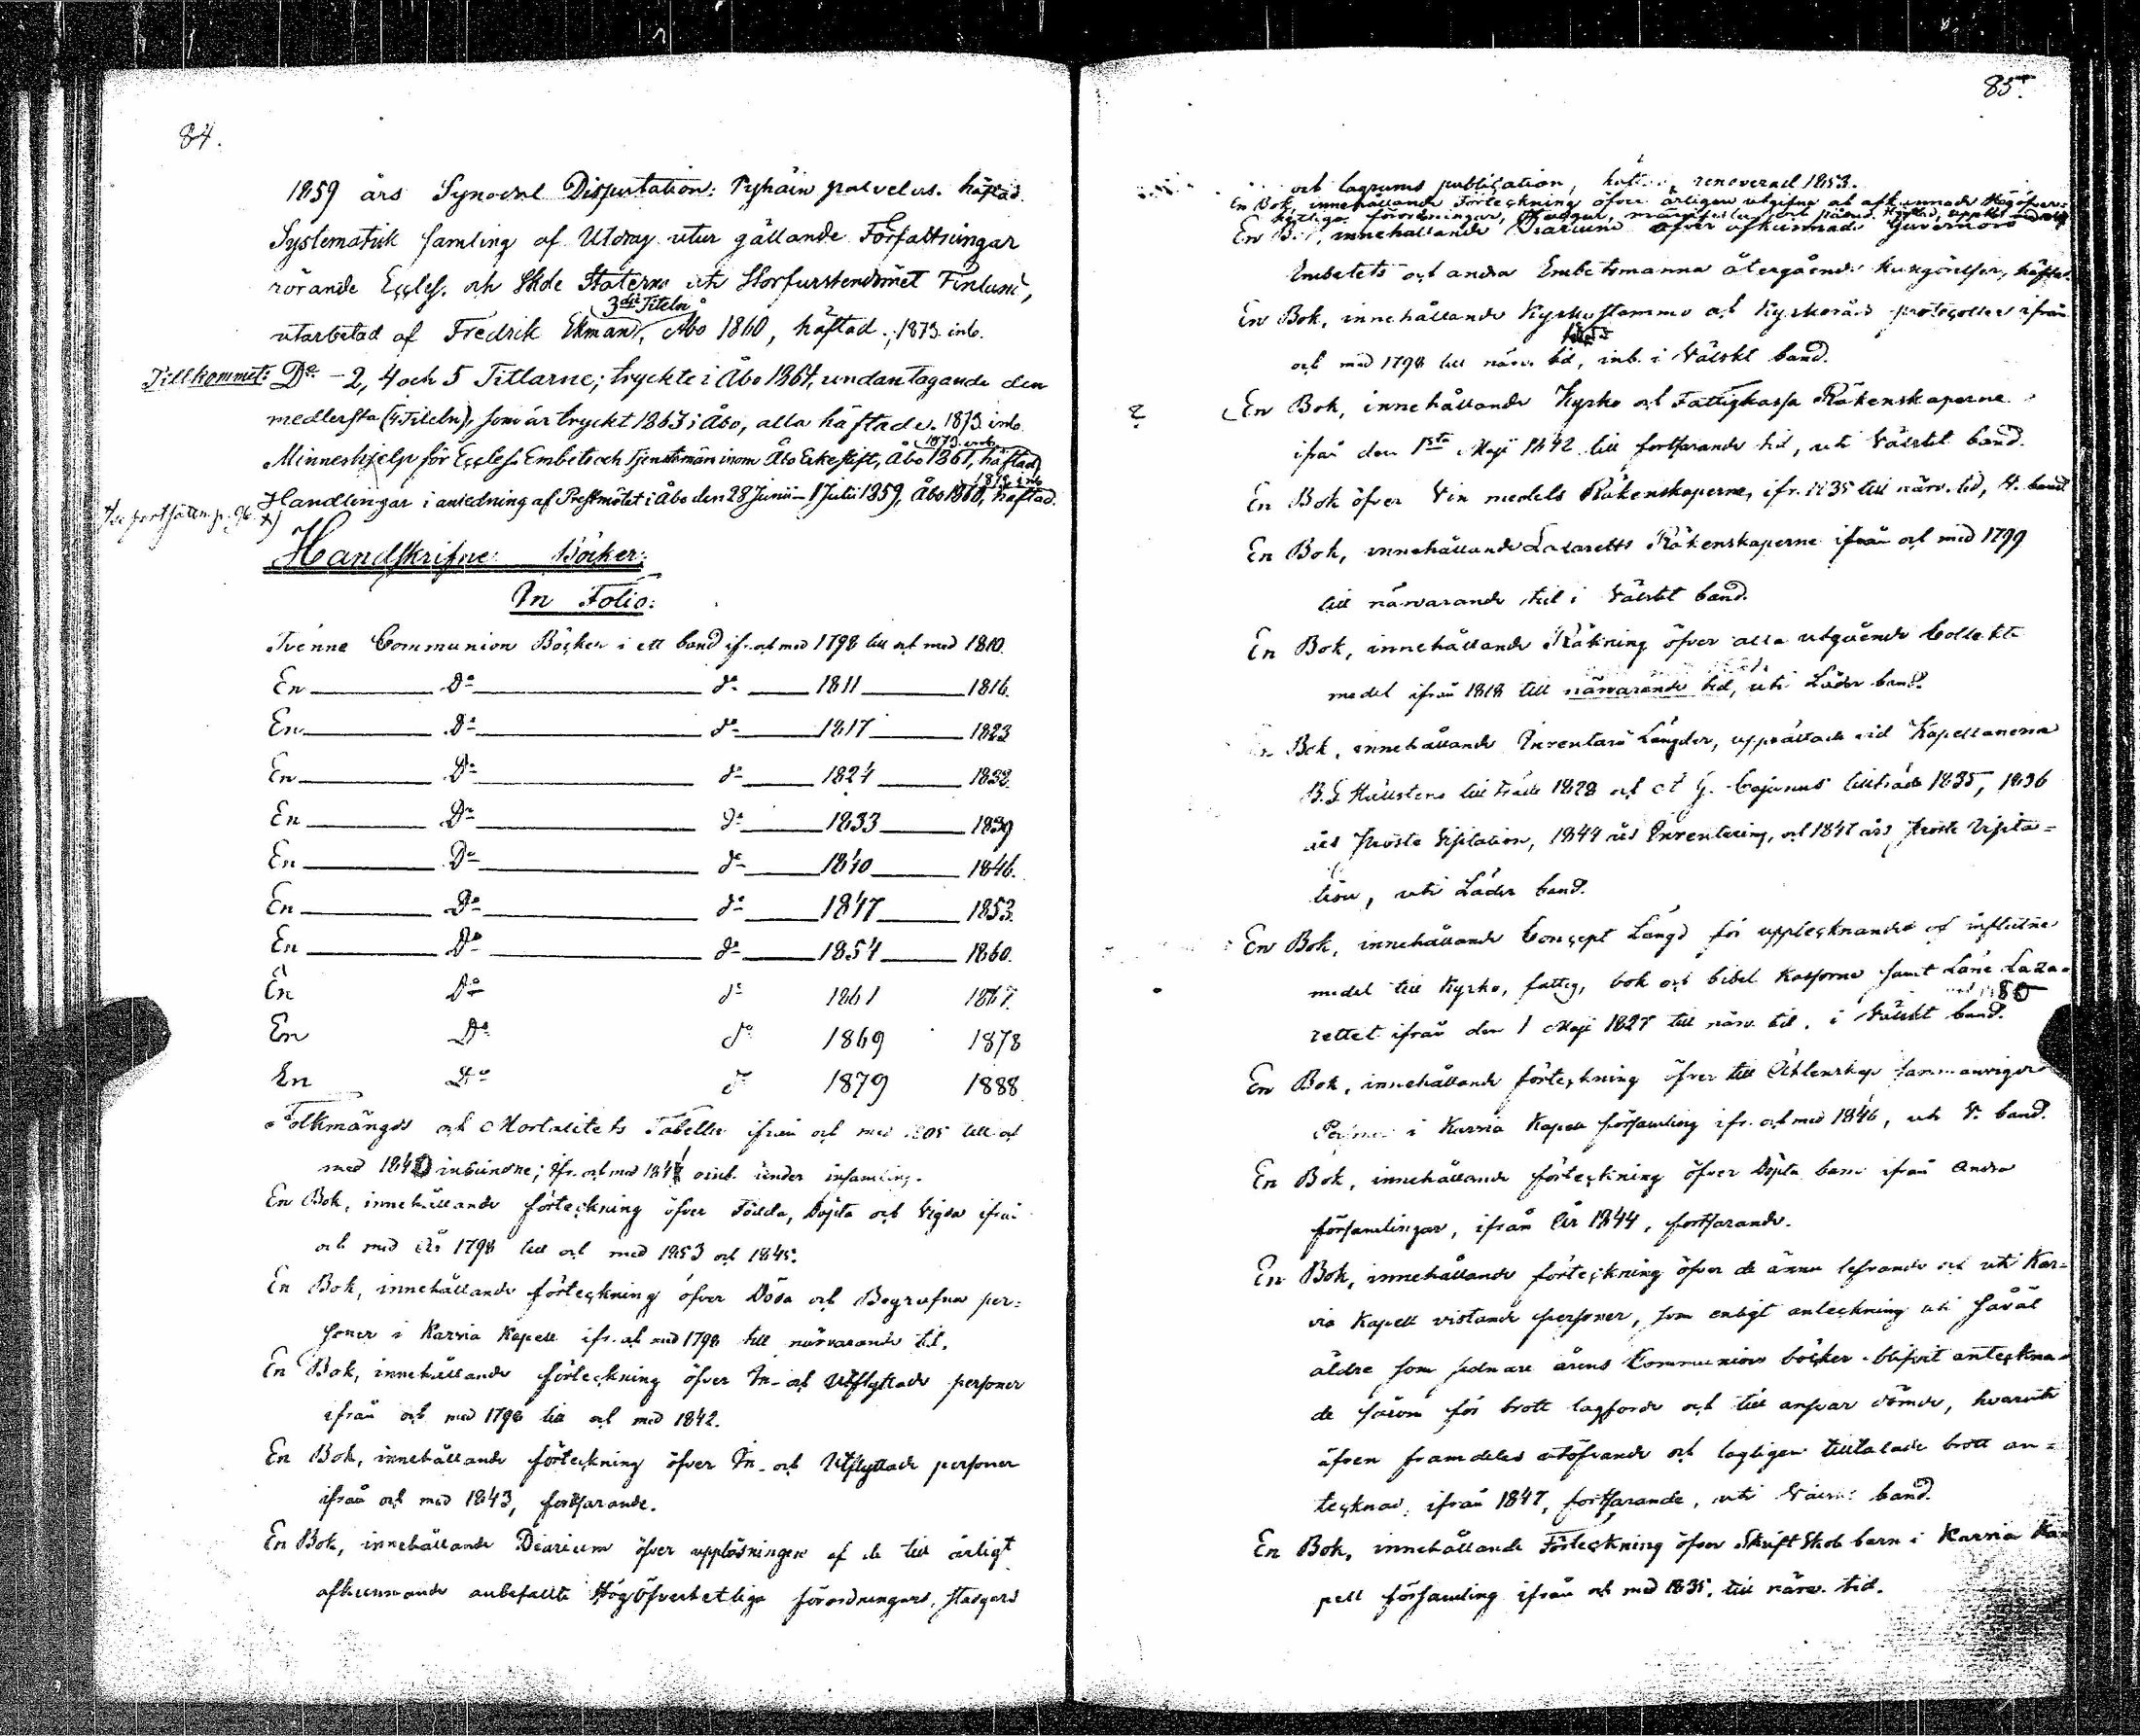 84.
1859 års Synodal Disputation: Pyhäin palvelus. häftad.
Systematisk samling af Utdrag utur gällande Författningar
rörande Eccles. och Skole Staterne uti Storfurstendömet Finland,
3dje Titeln
utarbetad af Fredrik Ekman, Åbo 1860, häftad. 1873. inb.
Tillkommit: Do - 2, 4 och 5 Titlarne; tryckte i Åbo 1864, undantagande den
medlersta (4. Titeln), som är tryckt 1863 i Åbo, alla häftade. 1873 inb.
1873. inb.
Minneshjelp för Eccles. Embets och Tjenstemän inom Åbo Erkestift, Åbo 1861, häftad
1873 inb
Handlingar i anledning af Prestmötet i Åbo den 28 Junii - 1 Julii 1859, Åbo 1860, häftad.
Handskrifne Böcker:
In Folio:
Tvenne Communion Böcker i ett band ifr. och med 1798 till och med 1810.
En Do do 1811 1816.
En Do do 1817 1823
En Do do 1824 1832.
En Do do 1833 1839
En Do do 1840 1846.
En Do do 1847 1853.
En Do do 1854 1860.
En Do do 1861 1867.
En Do do 1869 1878
En Do do 1879 1888
Folkmängds och Mortalitets Tabeller ifrån och med 1805 till och
med 1840 inbundne; ifr. och med 1841 oinb. under insamling.
En Bok, innehållande förteckning öfver Födda, Döpta och Vigda ifrån
och med År 1798 till och med 1853 och 1845.
En Bok, innehållande förteckning öfver Döda och Begrafna per=
soner i Karvia Kapell ifr. och med 1798 till närvarande tid.
En Bok, innehållande förteckning öfver In- och Utflyttade personer
ifrån och med 1798 till och med 1842.
En Bok, innehållande förteckning öfver In- och Utflyttade personer
ifrån och med 1843, fortfarande.
En Bok, innehållande Diarium öfver uppläsningen af de till årligt
afkunnande anbefallte Högöfverhetliga förordningars, stadgars
85.
och lagrums publication, renoverad 1853.
En Bok, innehållande Förteckning öfver årligen utgifne och afkunnade Högöfver=
hetliga förordningar, Stadgar,
En Bok, innehållande Diarium öfver afkunnade Guvernörs
Embetets och andra Embetsmanna återgående kungörelser, häftad.
En Bok, innehållande Kyrkostämmo och Kyrkoråds protocoller ifrån
och med 1798 till närv. tid, inb. i Välskt band.
En Bok, innehållande Kyrko och Fattigkassa Räkenskaperne
ifrån den 1sta Maji 1842 till fortfarande tid, uti Välskt band.
En Bok öfver Vin medels Räkenskaperne, ifr. 1835 till närv. tid, V. band
En Bok, innehållande Lazaretts Räkenskaperne ifrån och med 1799
till närvarande tid i Välskt band.
En Bok, innehållande Räkning öfver alla utgående Collekt
medel ifrån 1818 till närvarande tid, uti Läder band.
En Bok, innehållande Inventarii Längder, upprättade vid Kapellanerna
B. G. Hällstens tillträde 1828 och A. G. Cajanus tillträde 1835, 1836
års Proste Visitation, 1844 års Inventering, och 1847 års Proste Visita=
tion, uti Läder band.
En Bok, innehållande Concept Längd för upptecknandet af influtne
medel till Kyrko, fattig, bok och bibel kassorne samt Läne Laza=
rettet ifrån den 1 Maji 1827 till närv. tid, i Välskt band.
En Bok, innehållande förteckning öfver till Äktenskap sammanvigde
Personer i Karvia Kapell församling ifr. och med 1846, uti V. band.
En Bok, innehållande förteckning öfver Döpta barn ifrån andra
församlingar, ifrån År 1844, fortfarande.
En Bok, innehållande förteckning öfver de ännu lefvande och uti Kar=
via Kapell vistande personer, som enligt anteckning uti såväl
äldre som sednare årens Communion böcker blifvit anteckna=
de såsom för brott lagförde och till ansvar dömde, hvaruti
äfven framdeles utöfvande och lagligen tilltalade brott an=
tecknas, ifrån 1847, fortfarande, uti Välskt band.
En Bok, innehållande Förteckning öfver Skrift Skol barn i Karvia Ka
pell församling ifrån och med 1835, till närv. tid.